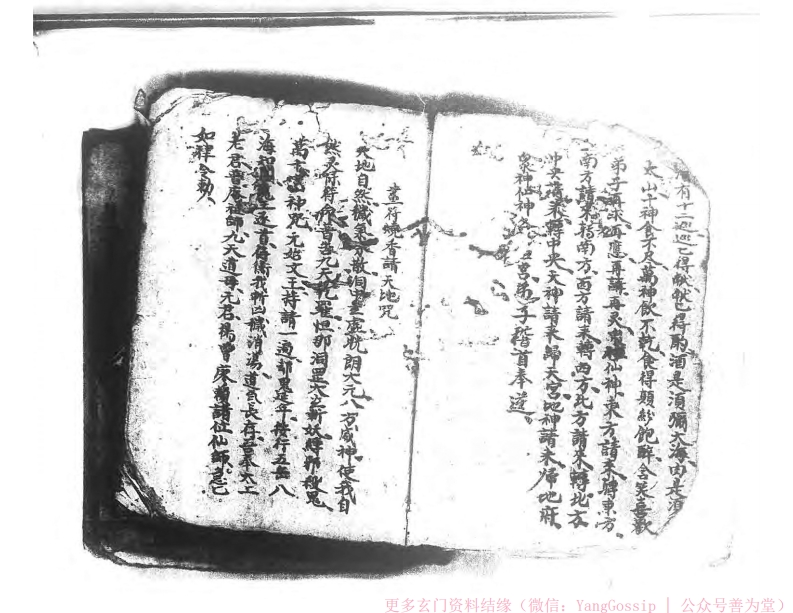 有十二巡巡已得献献已得酌酒是須彌大海肉是須
太山千神食不尽萬神飲不乾食得顛紗飽醉含笑喜歡
弟子再求再應再請再灵仙神東方請來歸東方
南方請來轉南方西方請來轉西方北方請來轉北方
中央請來轉中央天神請來歸天宮地神請來歸地府
衆神仙神各宮弟子稽首奉送
書符燒香請天地咒
天地自然穢氣分散洞中玄虛晃朗大元八方威神使我自
然灵宝符命普告九天乾羅怛那洞罡太玄斬妖縛邪殺鬼
萬千中山神咒元始文王持請一遍却鬼延年按行五岳八
海知聞魔王束首侍衛我軒凶穢消湯道氣長存奉太上
老君祖師九天道母元君楊曹廖諸位仙師急急
如律令勅
更多玄门资料结缘（微信：YangGossip | 公众号善为堂）